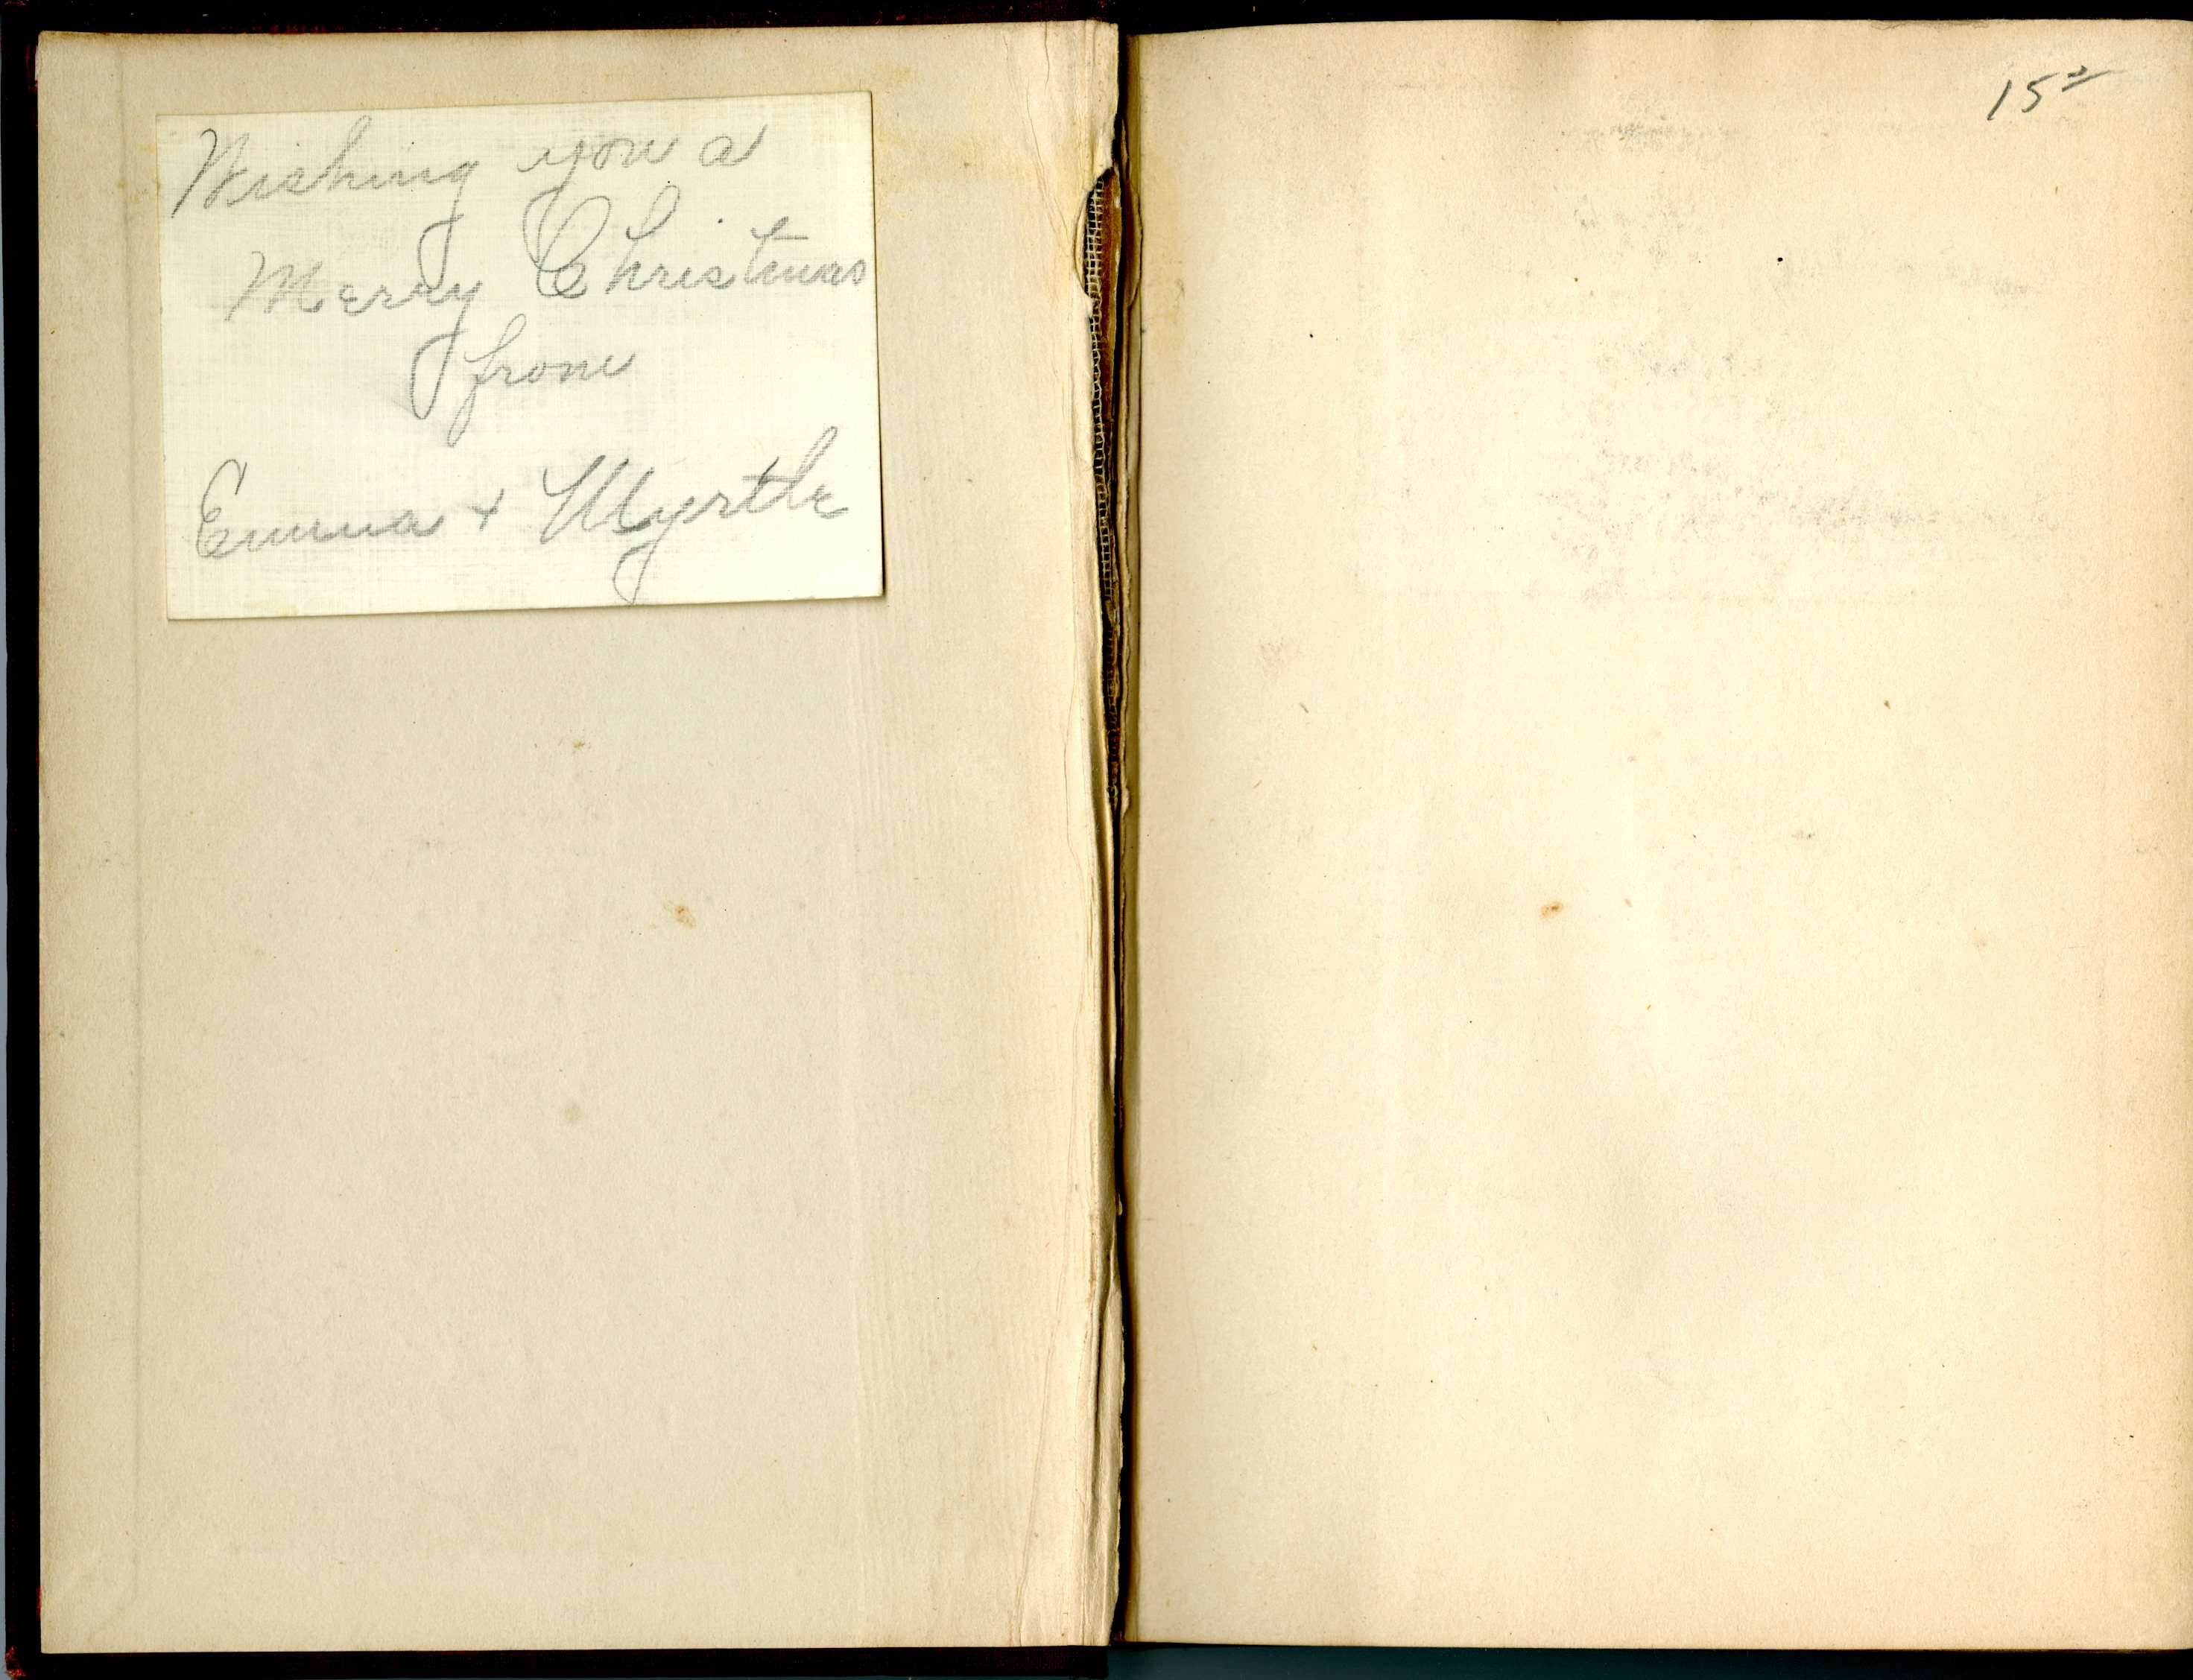 Wishing you a
Merry Christmas
from
Emma + Myrtle
15